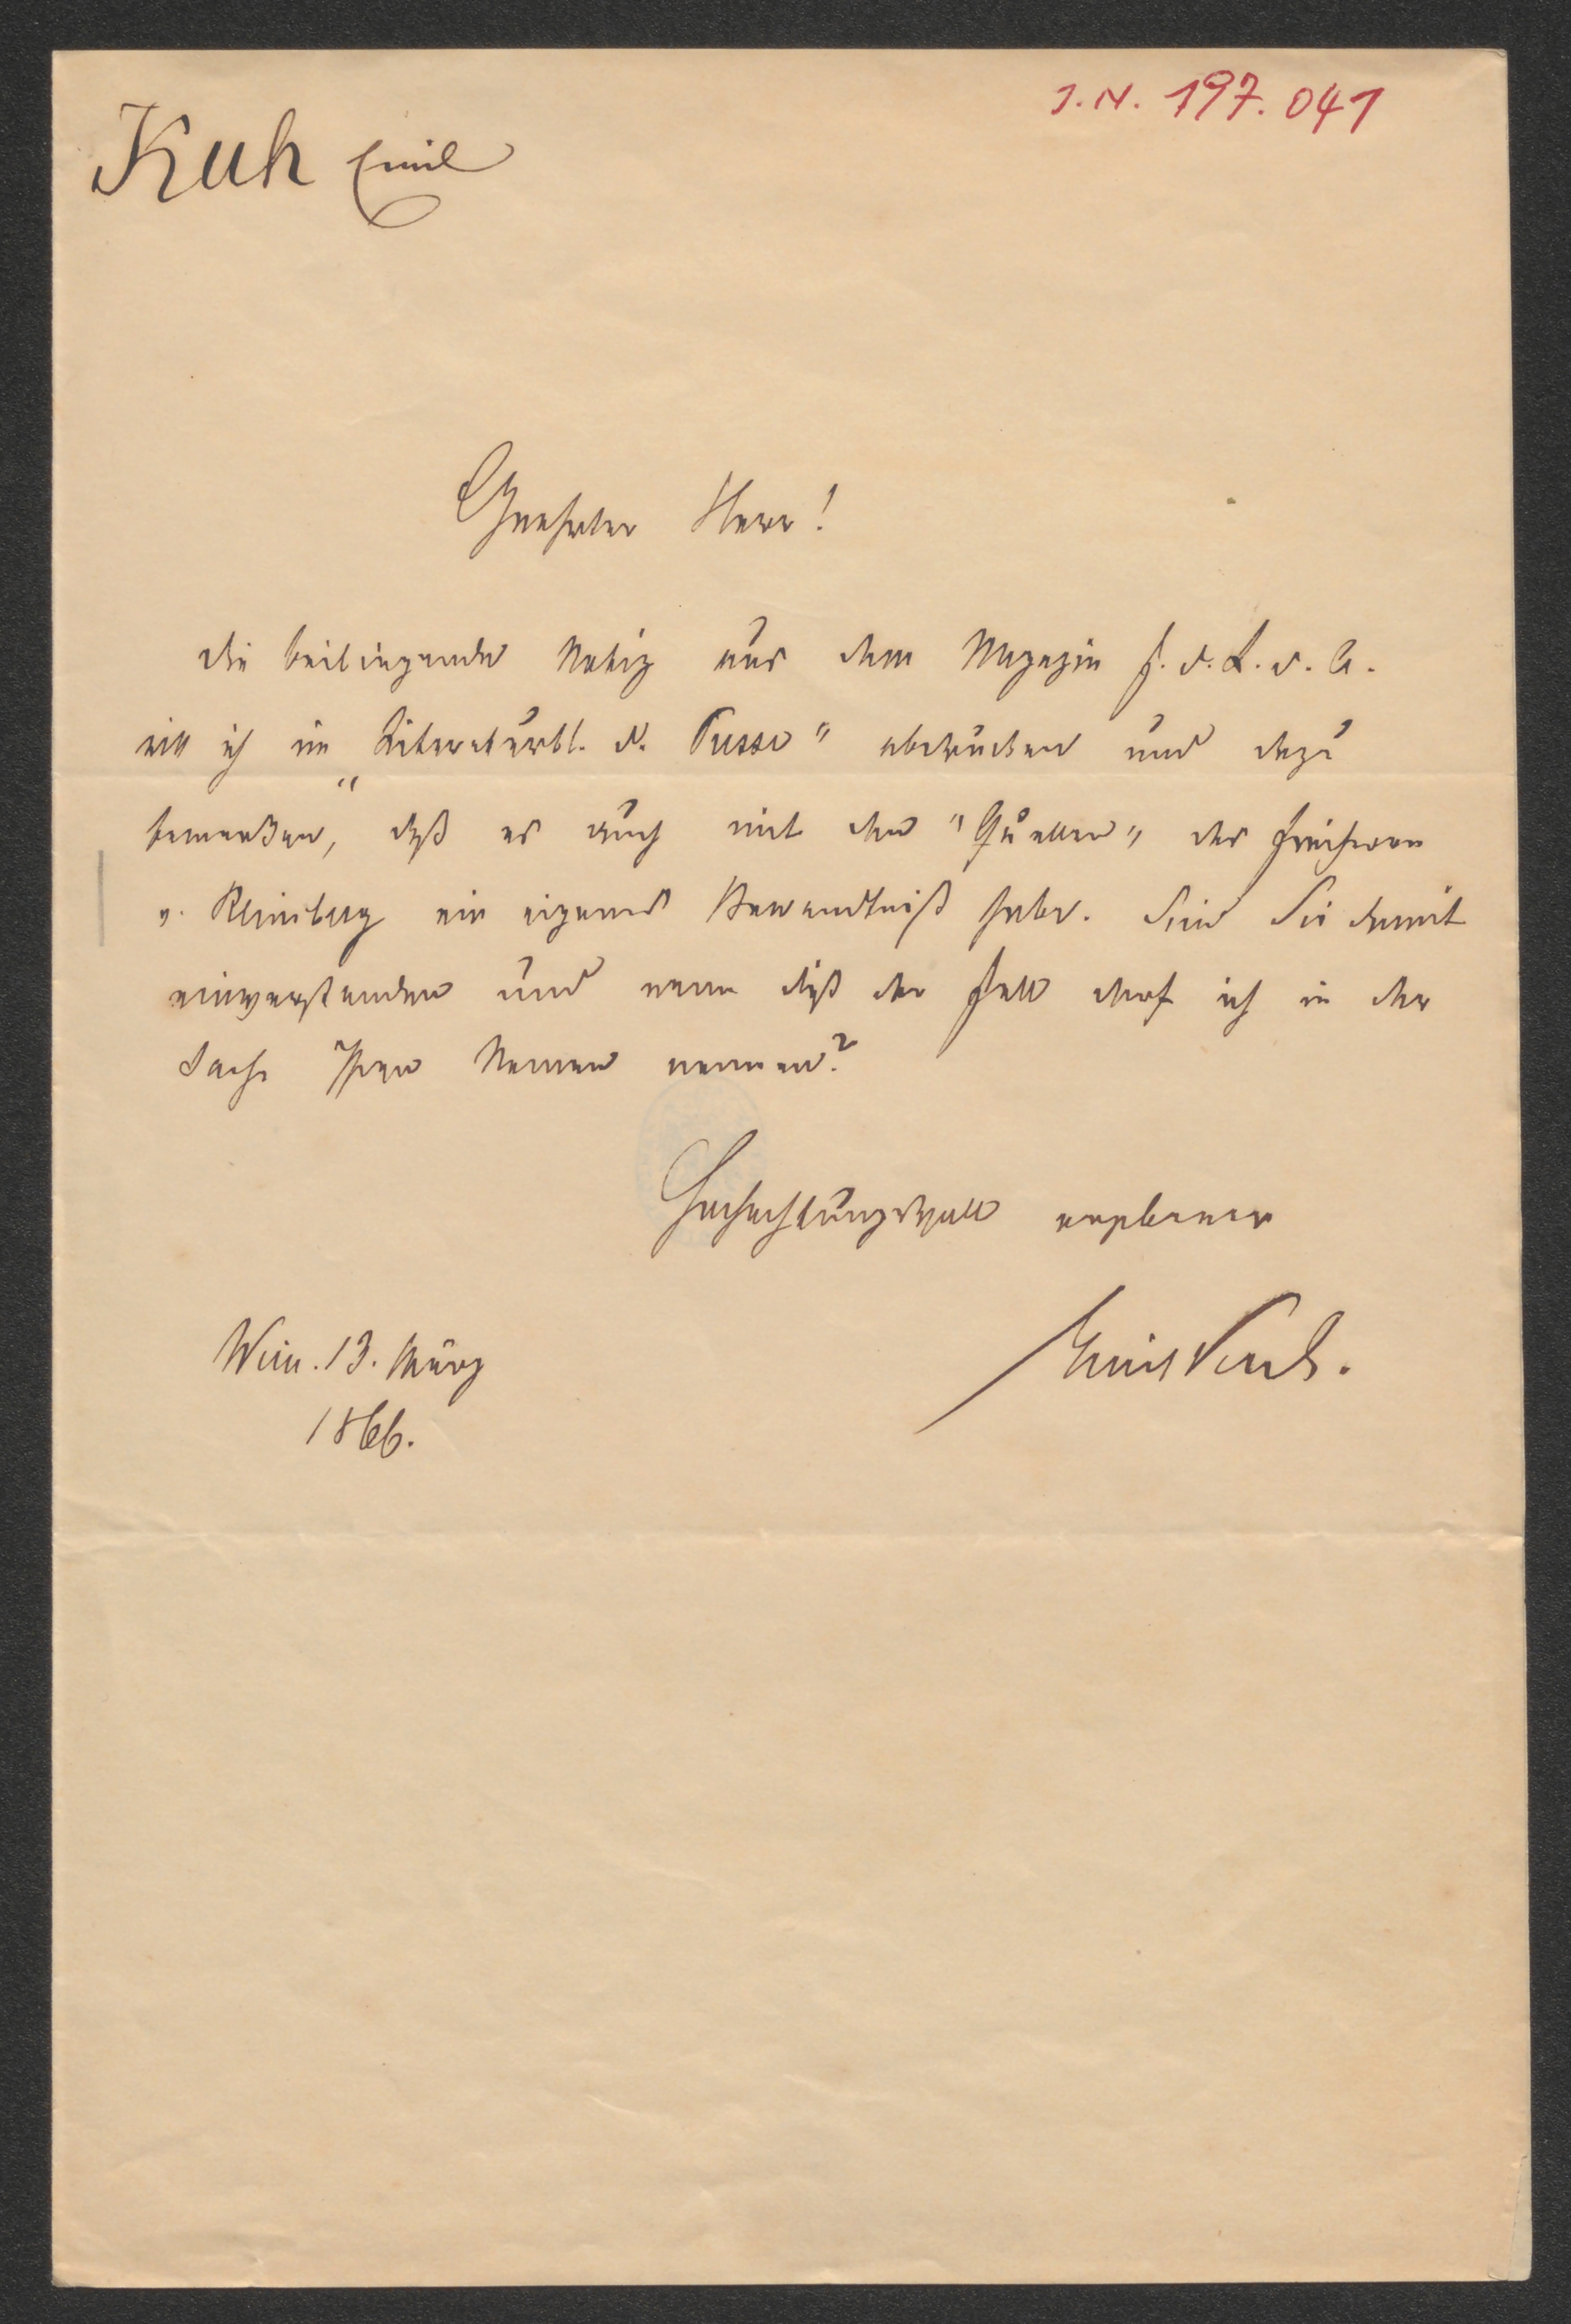 I.N. 197.041
Kuh Emil
Geehrter Herr!
Die beiliegende Notiz aus dem Magazin f. d. L. d. A.
will ich im "Literaturbl. d. Presse" abdrucken und dazu
bemerken, daß es auch mit den "Quellen" des Freiherrn
v. Reinsberg ein eigenes Bewandtniß habe. Sind Sie damit
einverstanden und wenn dieß der Fall darf ich in der
Sache Ihren Namen nennen?
Hochachtungsvoll ergebener
Emil Kuh.
Wien. 13. März
1866.